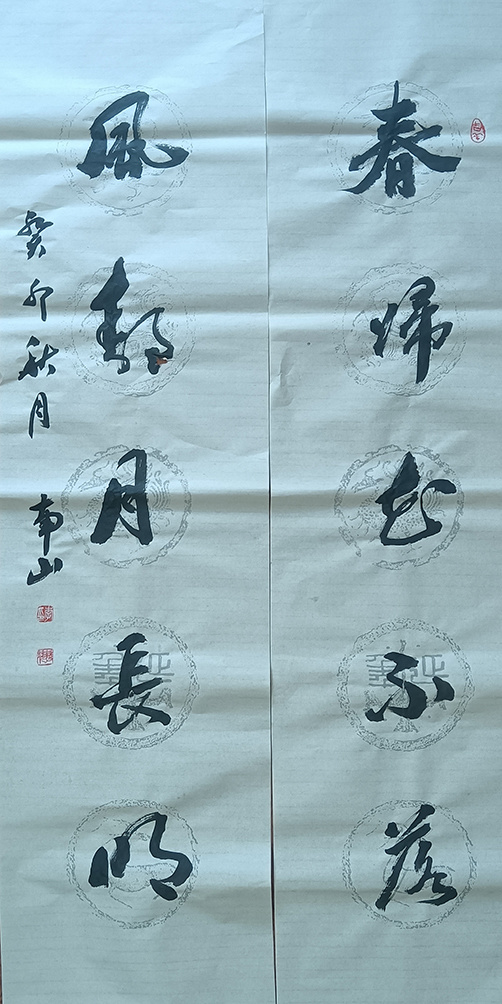 春帰花不落
風静月長明
癸卯秋月 南山